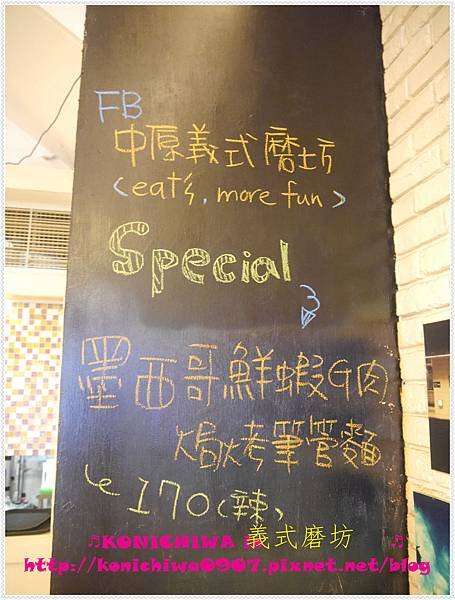 FB
中原義式磨坊
<eat's, more fun>
Special
墨西哥鮮蝦G肉
焗烤筆管麵
170(辣)
♫KONICHIWA 義式磨坊 ♫
http://konichiwa0907.pixnet.net/blog